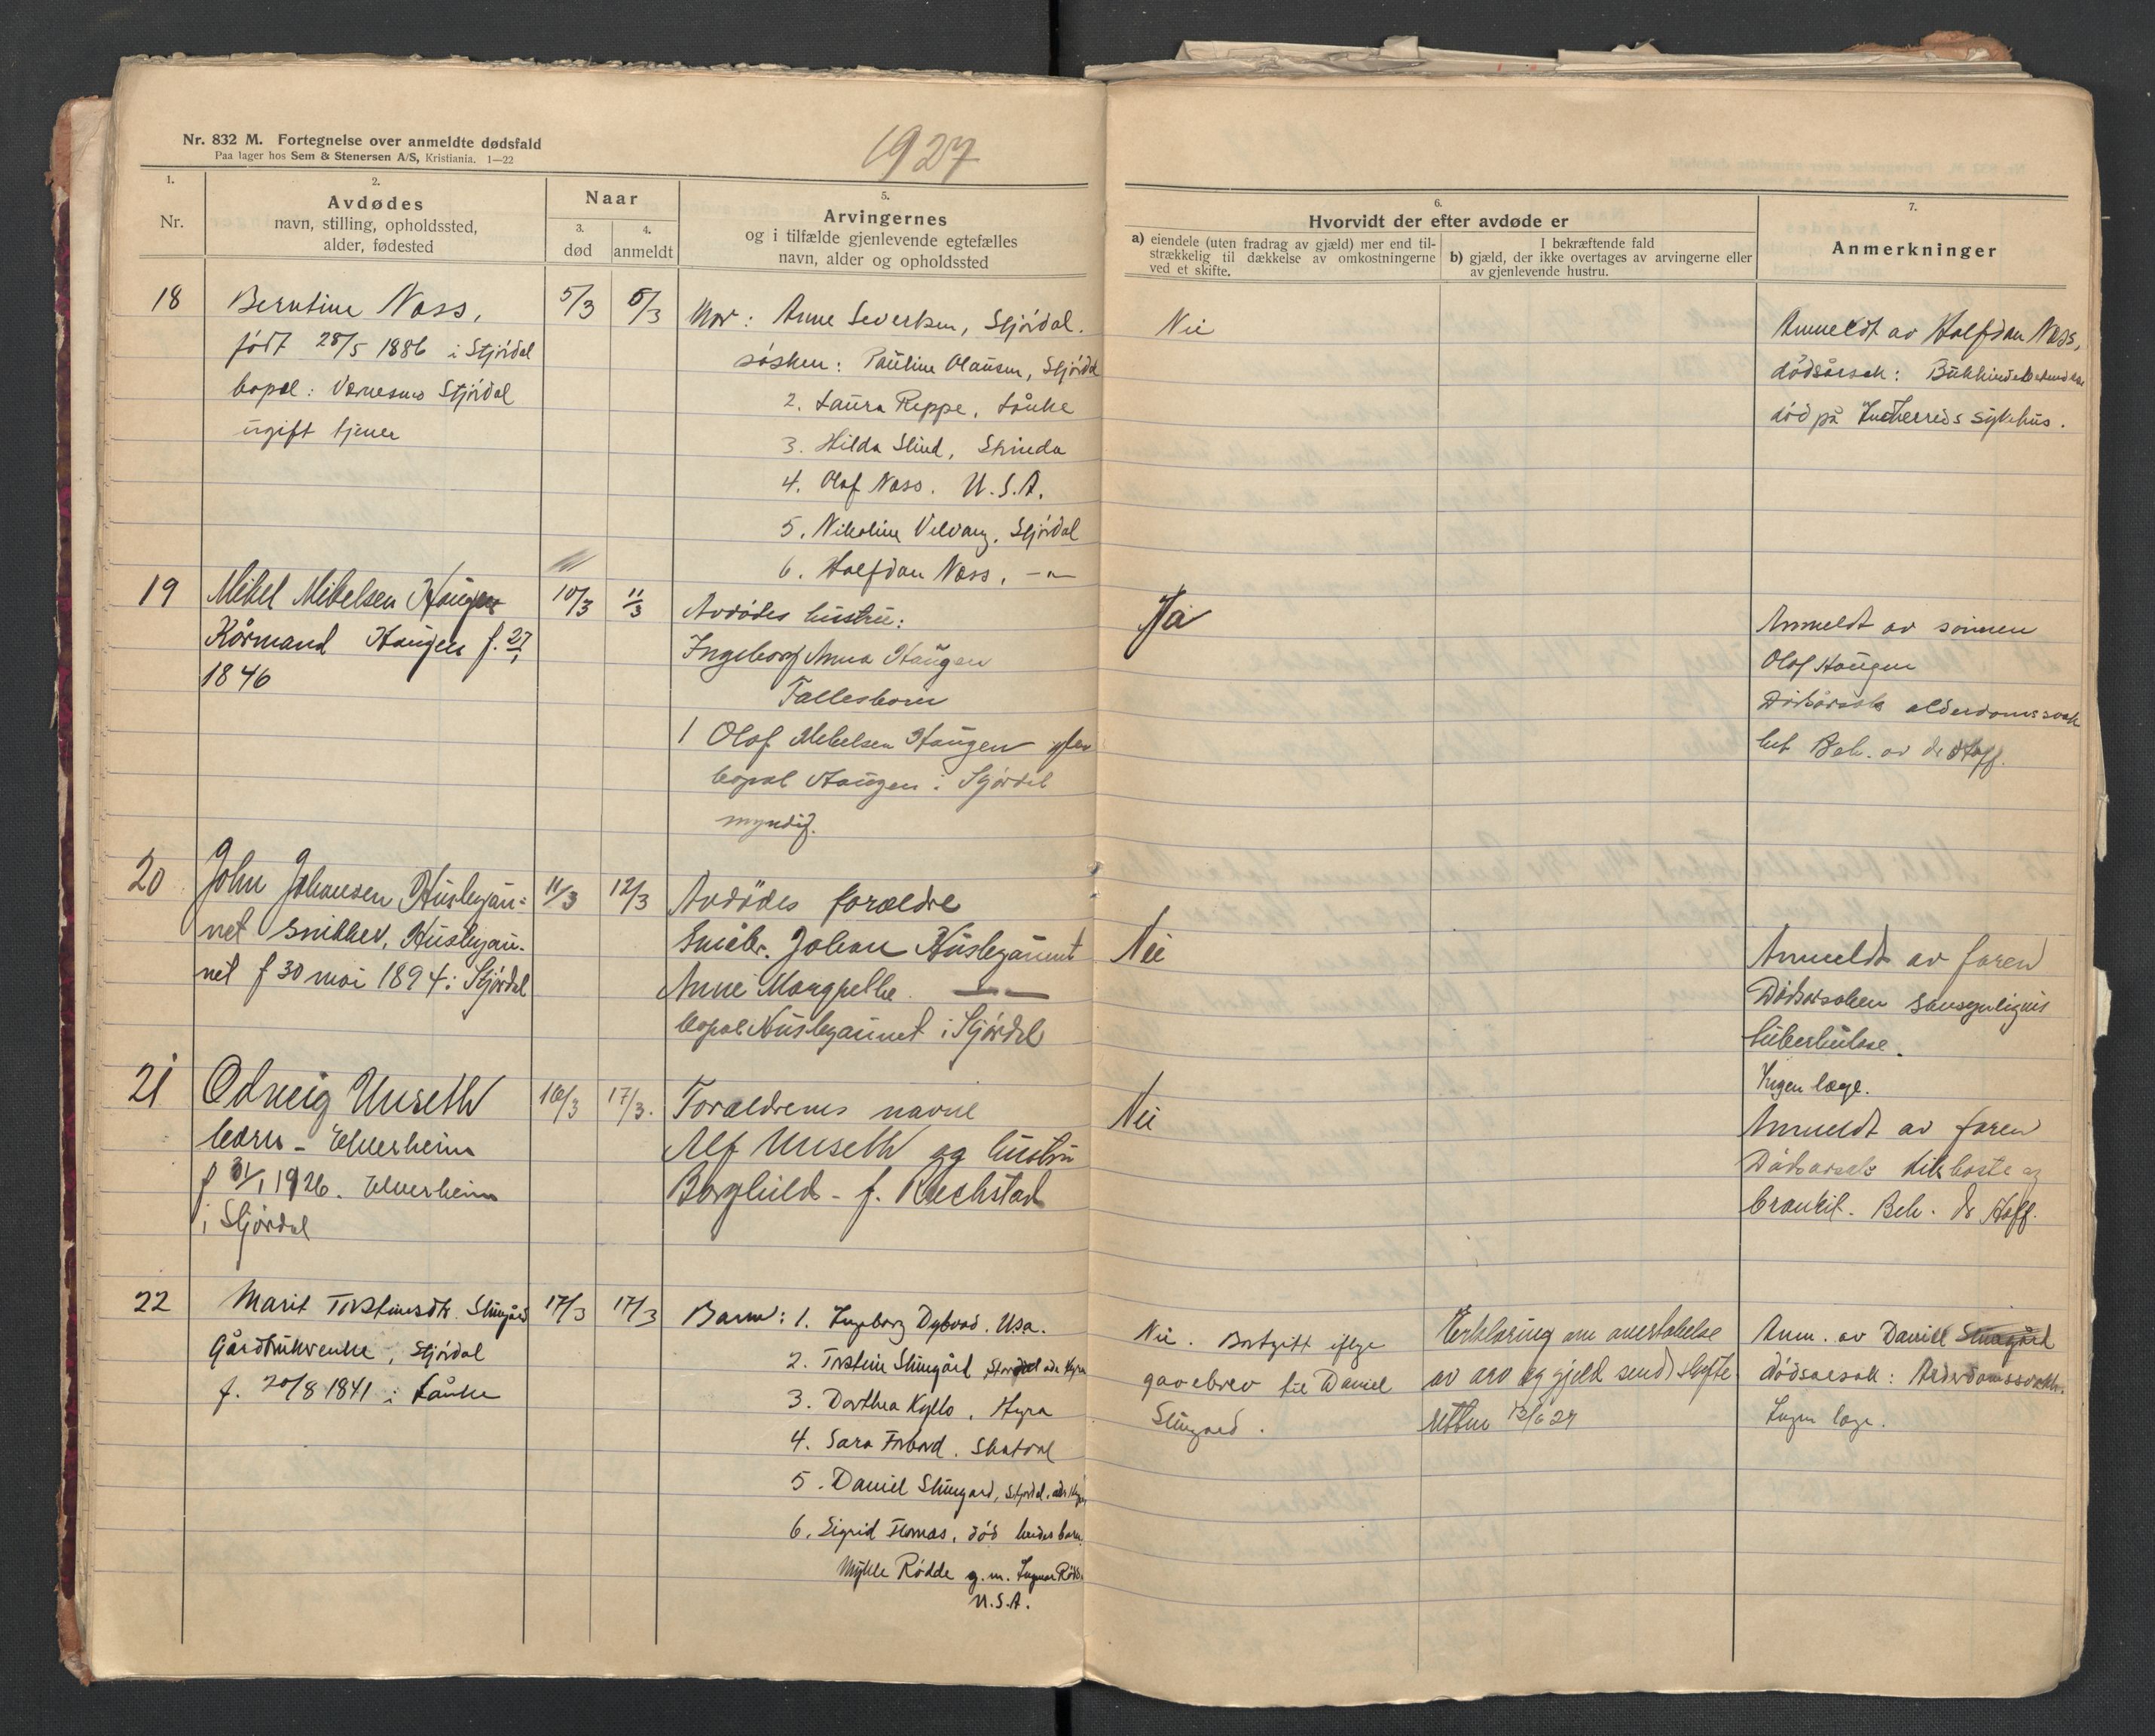 Nr. 832 M. Fortegnelse over anmeldte dødsfald
Paa lager hos Sem & Stenersen A/S, Kristiania. 1—22
1927
1.
Nr.
2.
Avdødes
navn, stilling, opholdssted,
alder, fødested
Naar
3.
død
4.
anmeldt
5.
Arvingernes
og i tilfælde gjenlevende egtefælles
navn, alder og opholdssted
6.
Hvorvidt der efter avdøde er
a) eiendele (uten fradrag av gjæld) mer end til-
strækkelig til dækkelse av omkostningerne
ved et skifte.
I bekræftende fald
b) gjæld, der ikke overtages av arvingerne eller
av gjenlevende hustru.
7.
Anmerkninger
18
Berntine Næss,
født 28/5 1886 i Stjørdal
bopæl: Værnesmo Stjørdal
ugift tjener
5/3
5/3
Mor: Anne Severksen, Stjørdal.
søsken: Pauline Olausen, Stjørdal
2. Laura Reppe, Lånke
3. Hilda Slind, Strinda
4. Olaf Næss. U.S.A.
5. Nikoline Velvang, Stjørdal
6. Halfdan Næss, -"-
Nei
Anmeldt av Halfdan Næss,
dødsårsak:
død på Innherreds sykehus.
19
Mikel Mikelsen Haugen
Kårmand Haugen f. 27/1
1846
10/3
11/3
Avdødes hustru:
Ingeborg Anna Haugen
Fællesbarn
1 Olaf Mikelsen Haugen
bopæl Haugen i Stjørdal
myndig.
Ja
Anmeldt av sønnen
Olaf Haugen
Dødsårsak alderdomssvak
het Beh. av dr Hoff.
20
John Johansen Husbygaun=
net Snikker, Husbygau-
net f 30 mai 1894 i Stjørdal
11/3
12/3
Avdødes forældre
Snekr. Johan Husbyaunet
Anne Margrethe — —
bopæl Husbyaunet i Stjørdal
Nei
Anmeldt av faren
Dødsarsaken sansynligvis
tuberkulose.
Ingen læge.
21
Oddveig Unseth
barn - Elverheim
f 31/1 1926. Elverheim
i Stjørdal
16/3
17/3.
Forældrenes navne
Alf Unseth og hustru
Borghild - f.
Nei
Anmeldt av faren
Dødsarsak kikhoste og
bronkit. Beh. dr Hoff.
22
Marit Torstensdtr. Stuegård
Gårdbrukerenke, Stjørdal
f. 20/8 1841 i Lånke
17/3
17/3
Barn: 1. Ingeborg Dybvad. Usa.
2. Torstein Stuegård, Stjørdal adr Hegra
3. Dorthea Kyllo, Hegra
4. Sara Forbord. Skatval
5. Daniel Stuegard, Stjørdal. adr Hegra
6. Sigrid Flornæs, død hendes barn.
Mykle Rødde g.m. Ingvar Rødde
U.S.A.
Nei. Bortgitt iflge
gavebrev til Daniel
Stuegaard.
Erklæring om overtakelse
av arv og gjeld sendt skifte
retten 13/6 27
Anm. av Daniel Stuegård
dødsarsak: Alderdomssvakh.
Ingen læge.